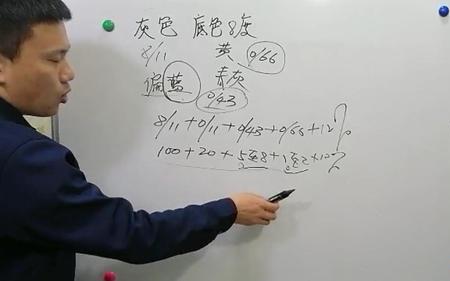 灰色 底色8度
8/11 黄 0/66
偏蓝 紫灰
0/43
8/11+0/11+0/43+0/66+12%
100+20+5至8+1至2+12%